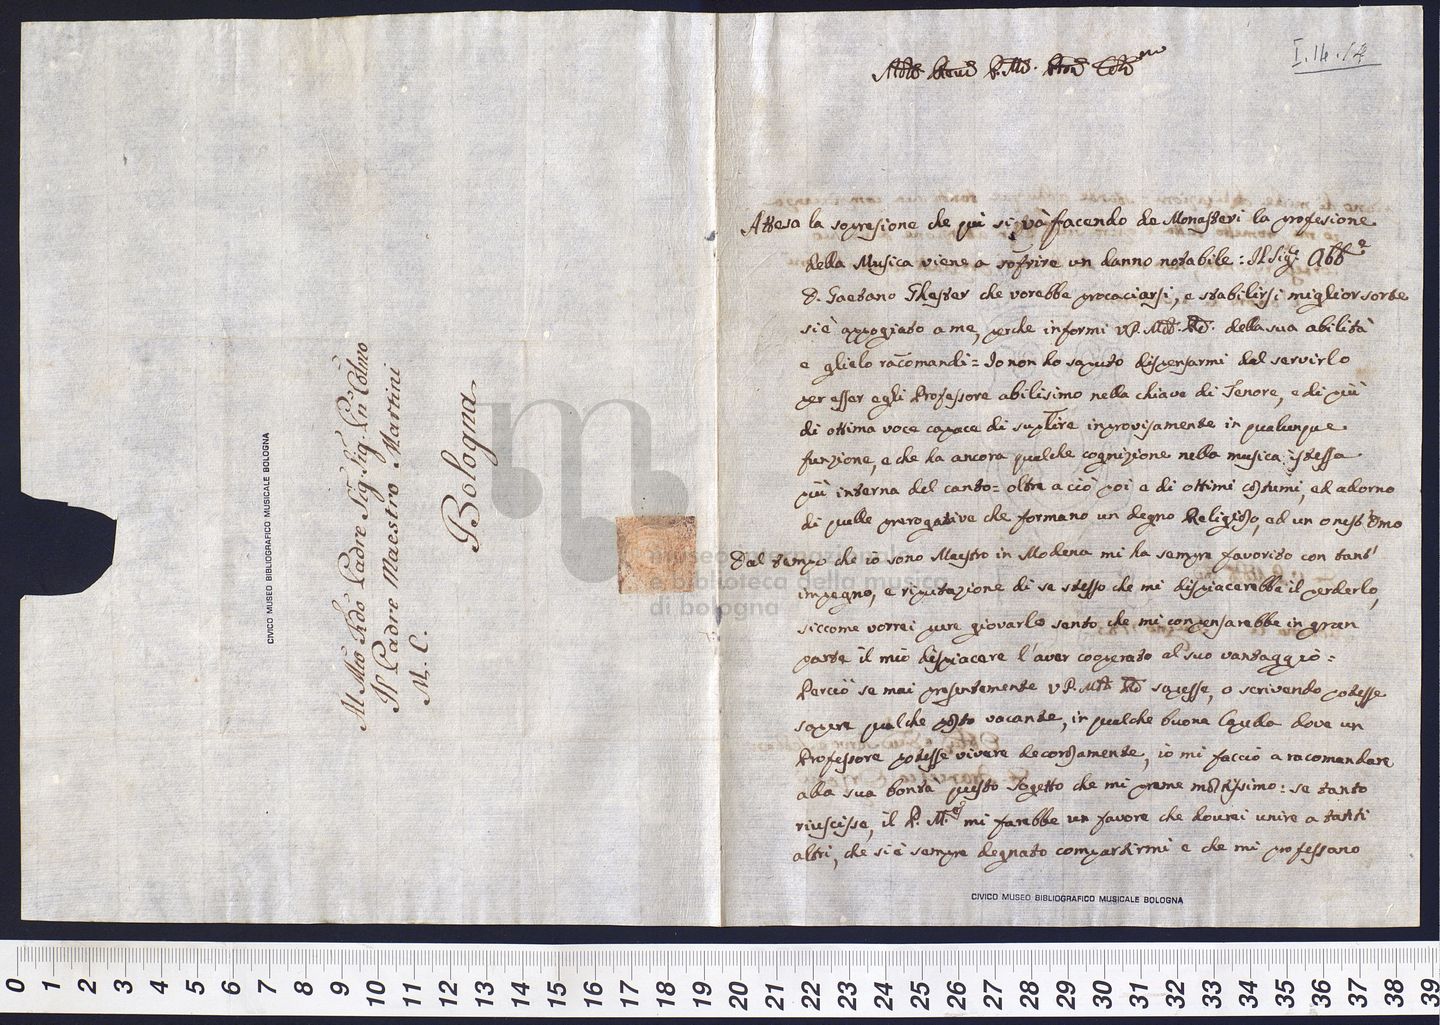 Al Mto Rdo Padre Sig. Sig. Pn Colmo
Il Padre Maestro Martini
M. C.
Bologna
CIVICO MUSEO BIBLIOGRAFICO MUSICALE BOLOGNA
I.14.14
Attesa la sopresione che qui si và facendo de Monasteri la profesione
della Musica viene a sofrire un danno notabile: Il Sigr. Abbe
D. Gaetano Ghester che vorebbe procaciarsi, e stabilirsi miglior sorte
si è appogiato a me, perche informi VP. Mtõ. Rdõ. della sua abilità
e glielo racomandi = Io non ho saputo dispensarmi dal servirlo
per esser egli Professore abilisimo nella chiave di Tenore, e di più
di ottima voce capace di suplire inprovisamente in qualunque
funzione, e che ha ancora qualche cognizione nella musica istessa
più interna del canto = oltre a ciò poi e di ottimi costumi, ed adorno
di quelle prerogative che formano un degno Religioso, ed un onest'Omo
Dal tempo che io sono Maestro in Modena mi ha sempre favorito con tant'
impegno, e riputazione di se stesso che mi dispiacerebbe il perderlo,
siccome vorrei pure giovarlo tanto che mi conpensarebbe in gran
parte il mio dispiacere l'aver cooperato al suo vantaggio =
Perciò se mai presentemente VP. Mtõ Rdõ sapesse, o scrivendo potesse
sapere qualche posto vacante, in qualche buona Capella dove un
Professore potesse vivere decorosamente, io mi faccio a racomandare
alla sua bontà questo Sogetto che mi preme moltissimo: se tanto
riuscisse, il P. M.o mi farebbe un favore che dovrei unire a tanti
altri, che si è sempre degnato compartirmi e che mi professano
CIVICO MUSEO BIBLIOGRAFICO MUSICALE BOLOGNA
museo internazionale
e biblioteca della musica
di bologna
0 1 2 3 4 5 6 7 8 9 10 11 12 13 14 15 16 17 18 19 20 21 22 23 24 25 26 27 28 29 30 31 32 33 34 35 36 37 38 39